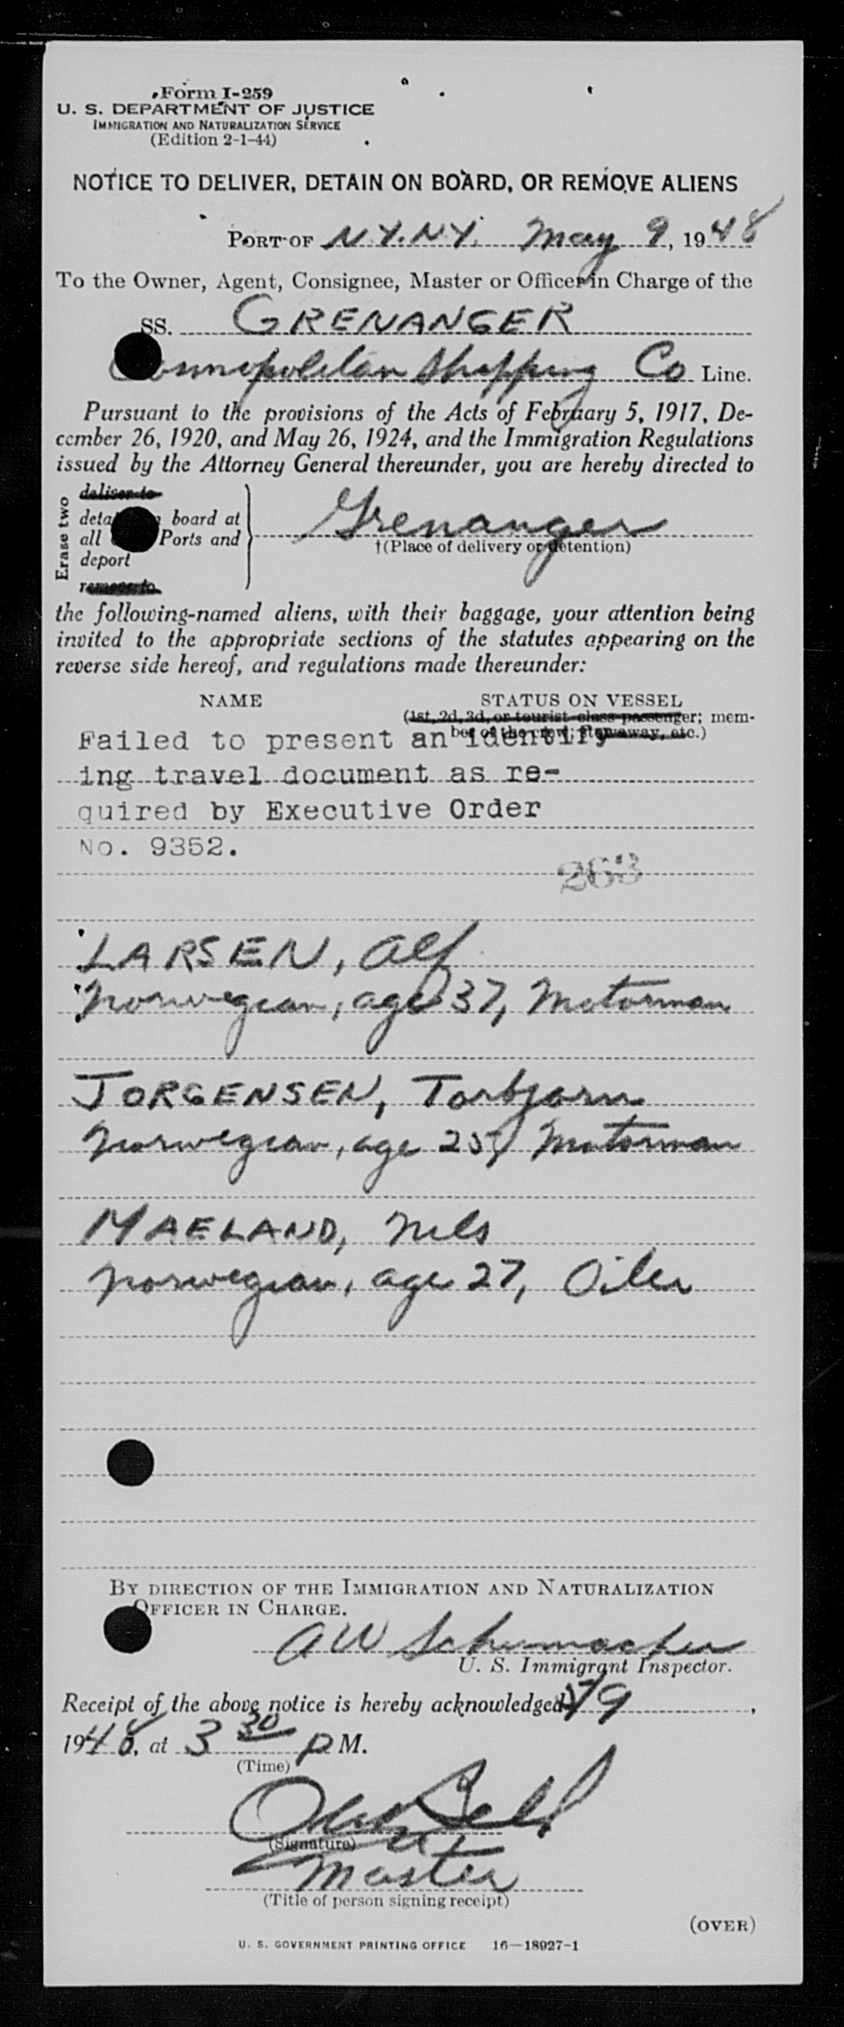 Form I-259
U. S. DEPARTMENT OF JUSTICE
IMMIGRATION AND NATURALIZATION SERVICE
(Edition 2-1-44)
NOTICE TO DELIVER, DETAIN ON BOARD, OR REMOVE ALIENS
PORT OF N.Y.N.Y. May 9, 1948
To the Owner, Agent, Consignee, Master or Officer in Charge of the
SS. GRENANGER
Cosmopolitan Shipping Co Line.
Pursuant to the provisions of the Acts of February 5, 1917, De-
cember 26, 1920, and May 26, 1924, and the Immigration Regulations
issued by the Attorney General thereunder, you are hereby directed to
Erase two
deliver to
board at
all Ports and
deport
remove to
Grenanger
†(Place of delivery or detention)
the following-named aliens, with their baggage, your attention being
invited to the appropriate sections of the statutes appearing on the
reverse side hereof, and regulations made thereunder:
NAME STATUS ON VESSEL
(1st, 2d, 3d, or tourist-class passenger; mem-
ber of the crew; stowaway, etc.)
Failed to present an identify-
ing travel document as re-
quired by Executive Order
No. 9352.
263
LARSEN, Alf
Norwegian, age 37, Motorman
JORGENSEN, Torbjorn
Norwegian, age 25, Motorman
MAELAND, Nils
Norwegian, age 27, Oiler
BY DIRECTION OF THE IMMIGRATION AND NATURALIZATION
OFFICER IN CHARGE.
A W Schumacher
U. S. Immigrant Inspector.
Receipt of the above notice is hereby acknowledged 5/9,
1948, at 3 30 P M.
(Time)
(Signature)
Master
(Title of person signing receipt)
(OVER)
U. S. GOVERNMENT PRINTING OFFICE 16—18927-1